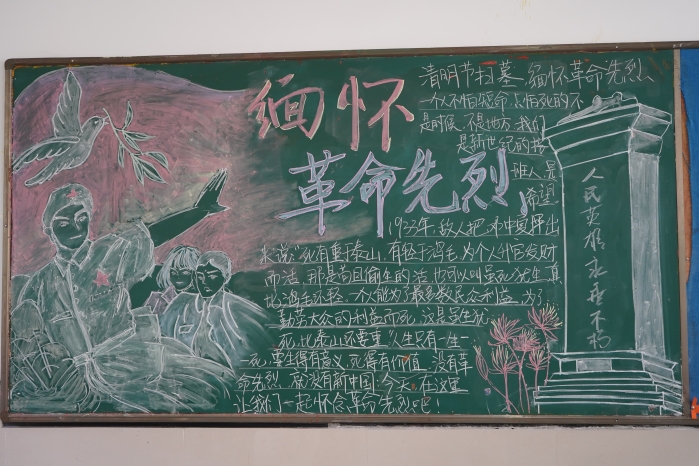 缅怀
革命先烈
清明节扫墓 缅怀革命先烈、
一个人不怕短命
是时候，不是地方，我们
是新世纪的接
班人 是
希望
1933年，敌人把邓中夏押出
来说："死有重于泰山，有轻于鸿毛，为个人升官发财
而活，那是苟且偷生的活，也可以叫虽死犹生，真
比鸿毛还轻，一个人能为了最多数民众利益，为了
勤劳大众的利益而死，这是虽生
死，比泰山还要重"人生只有一生一
死，要生得有意义，死得有价值，没有革
命先烈，就没有新中国，今天，在这里
让我们一起怀念革命先烈吧！
人民英雄永垂不朽